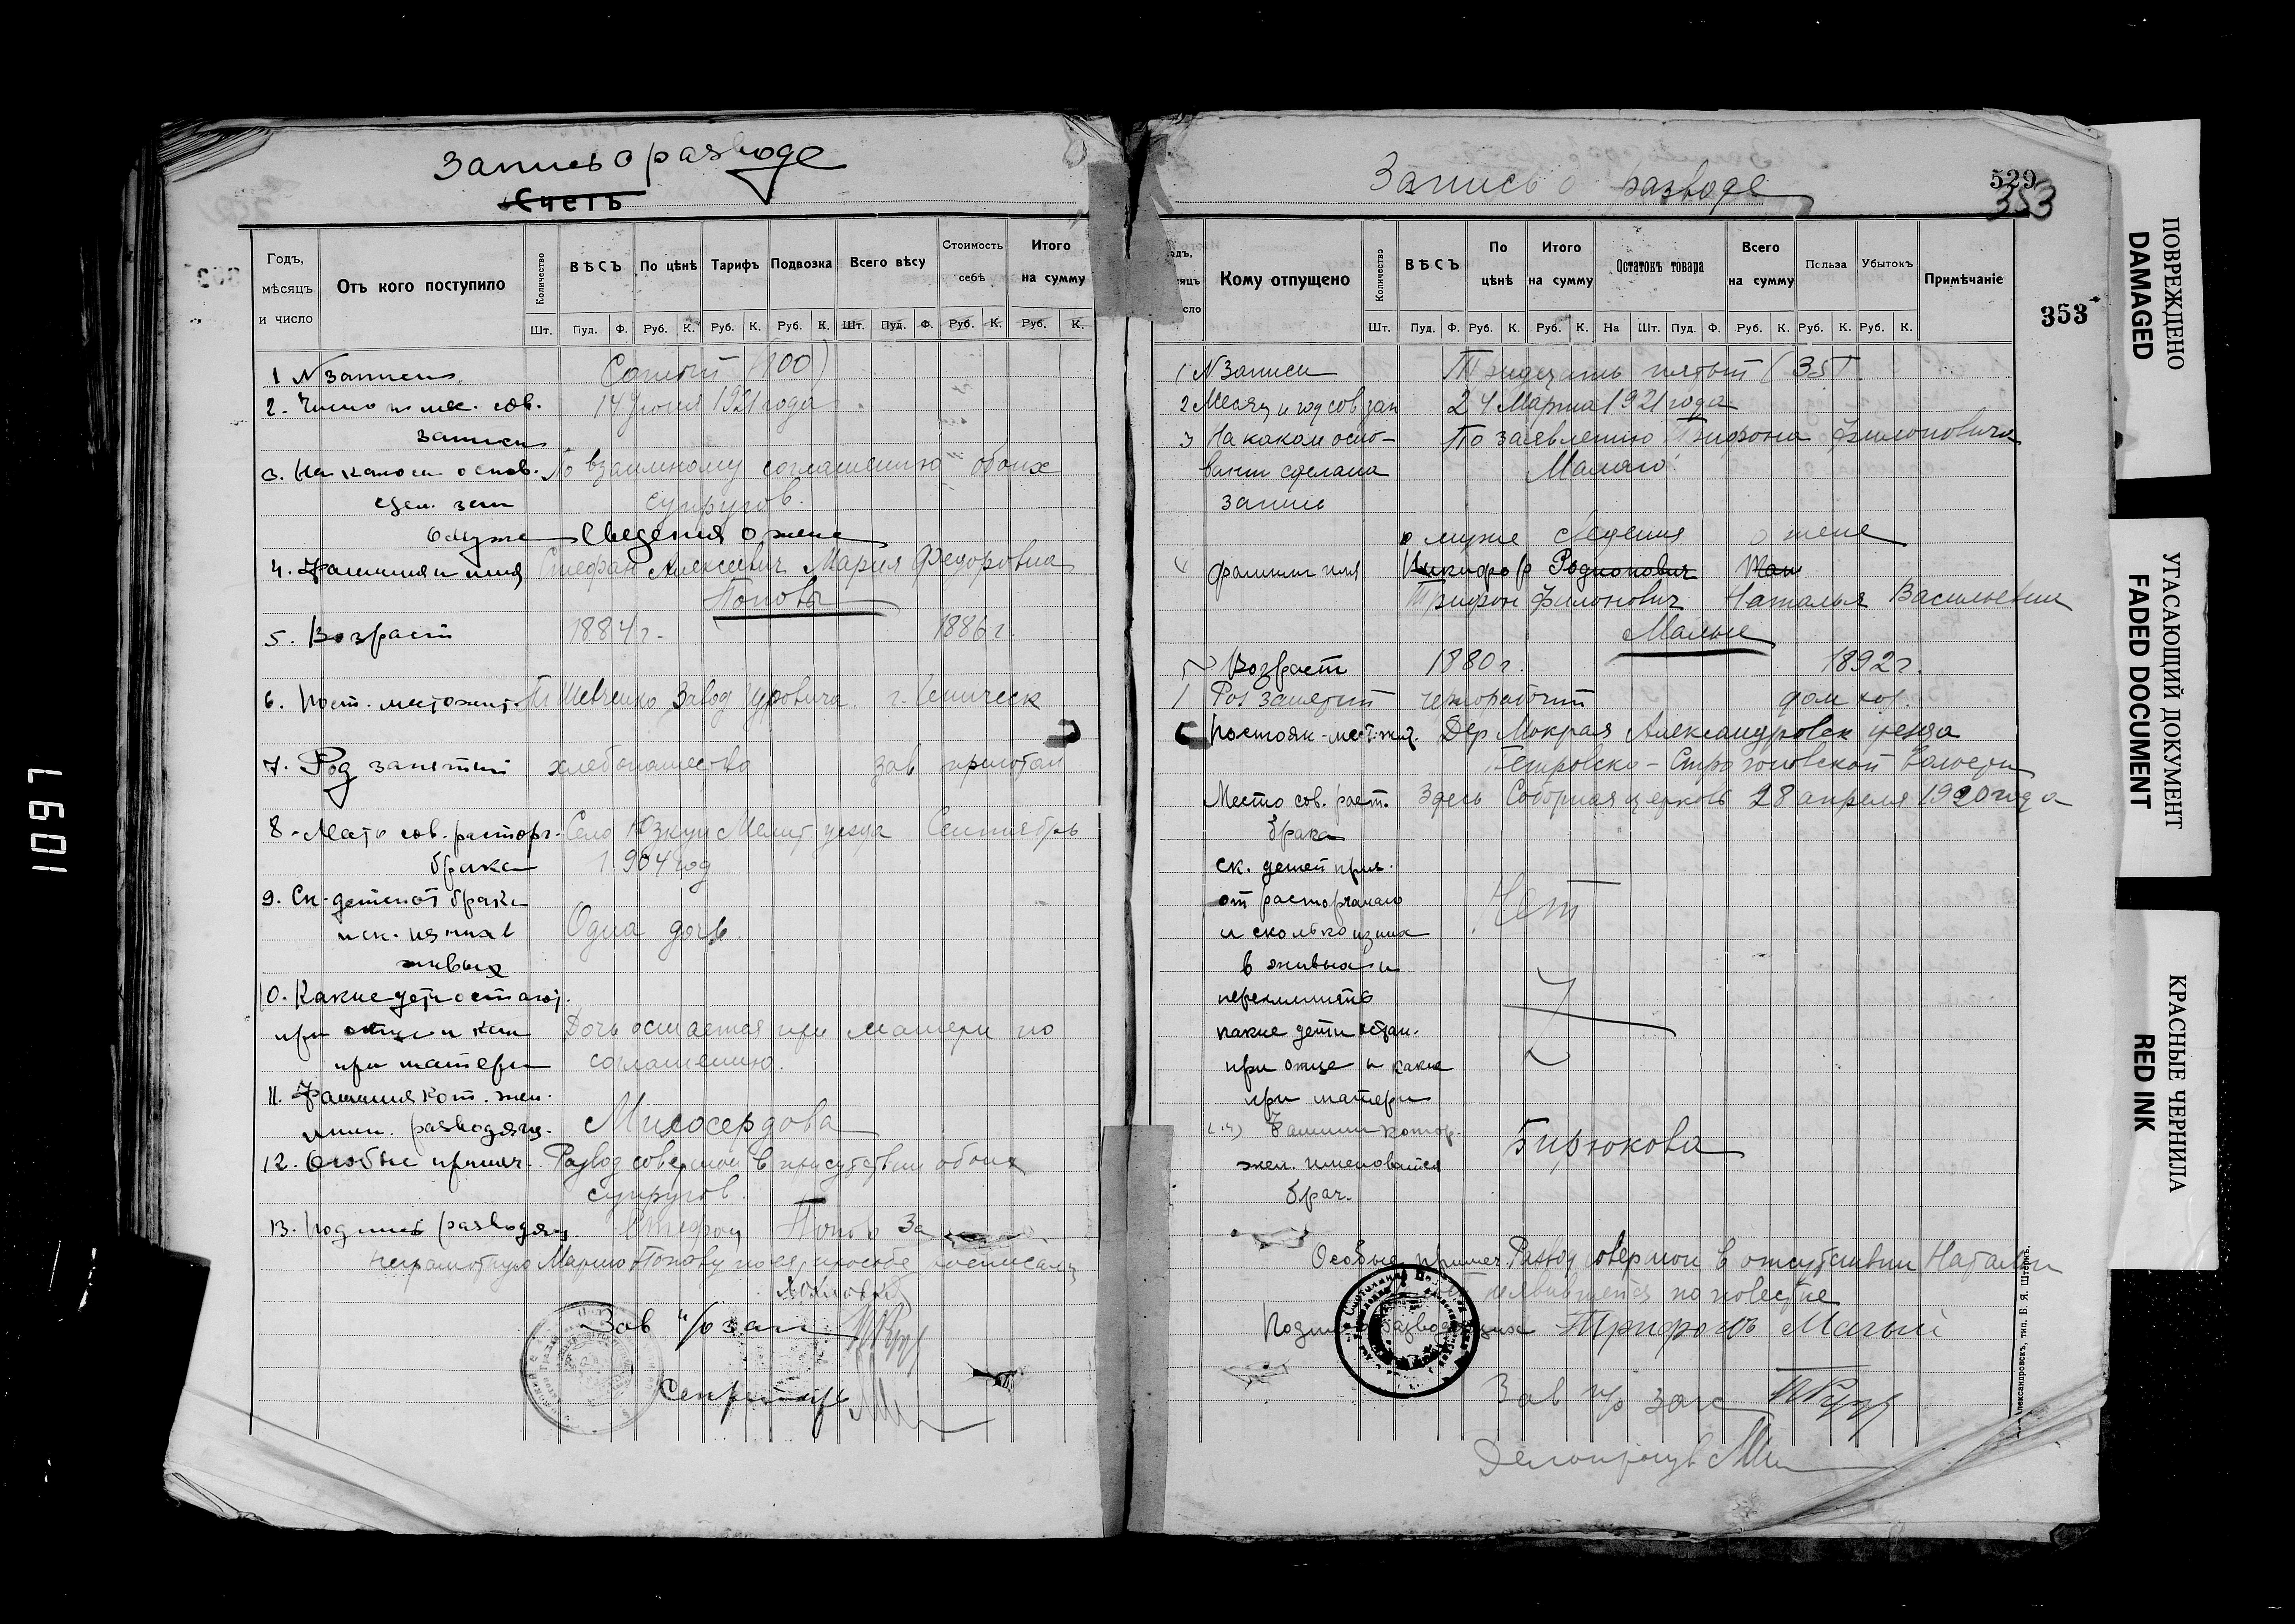 Запись о разводе
Счетъ
Годъ, мѣсяцъ и число
Отъ кого поступило
Количество
ВѢСЪ
По цѣнѣ
Тарифъ
Подвозка
Всего вѣсу
Стоимость себѣ
Итого на сумму
Шт. Пуд. Ф. Руб. К. Руб. К. Руб. К. Шт. Пуд. Ф. Руб. К. Руб. К.
1 N записи. Сотый (100)
2. Число и мес. сов. 14 Июня 1921 года
записи
3. На каком основ. По взаимному соглашению обоих
сдел. зап супругов.
О муже Сведения о жене
4. Фамилия и имя Стефан Алексеевич Мария Федоровна
Поповы
5. Возраст 1884 г. 1886 г.
6. Пост. местожит. Завод г. Геническ
7. Род занятий хлебопашество зав
8. Место сов. расторг. Село Юзкуи Мелит уезда Сентябрь
брака 1904 год
9. Ск. детей от брака
и ск. из них в Одна дочь.
живых
10. Какие дети остают.
при отце и как Дочь остается при матери по
при матери соглашению.
11. Фамилия кот. жел.
имен. разводящ. Милосердова
12. Особые примеч. Развод совершон в присутствии обоих
супругов.
13. Подпись разводящ. Стефан Попов За
неграмотную Марию Попову по ея просьбе росписался
Зав п/о загс
Секретарь
Запись о разводе
529
353
353
Кому отпущено
Количество
ВѢСЪ
По цѣнѣ
Итого на сумму
Остатокъ товара
Всего на сумму
Польза
Убытокъ
Примѣчаніе
Шт. Пуд. Ф. Руб. К. Руб. К. На Шт. Пуд. Ф. Руб. К. Руб. К. Руб. К.
1 N Записи Тридцать пятый (35)
2 Месяц и год сов зап 24 Марта 1921 года
3 На каком осно- По заявлению Трифона Филоновича
вании сделана Малого
запись
о муже сведения о жене
4 Фамилия имя Никифор Родионович
Трифон Филонович Наталья Васильевна
Малые
5 Возраст 1880 г. 1892 г.
Род занятий чернорабочий дом хоз.
Постоян. мест. жит. Дер Мокрая Александровск уезда
Петровско-Строгоновской волости
Место сов. раст. Здесь Соборная церковь 28 апреля 1920 года
брака
ск. детей при.
от расторгнаго Нет
и сколько из них
в живых и
перечислить
какие дети остан.
при отце и какие
при матери
Фамилии котор. Бирюкова
жел. именоватся
брач.
Особые примеч. Развод совершон в отсутствии Натальи
неявившейся по повестке
Подпись разводящихся Трифонъ Малый
Зав п/о загс
Делопроизв
Александровскъ, тип. Б. Я. Штернъ.
ПОВРЕЖДЕНО
DAMAGED
УГАСАЮЩИЙ ДОКУМЕНТ
FADED DOCUMENT
КРАСНЫЕ ЧЕРНИЛА
RED INK
1097